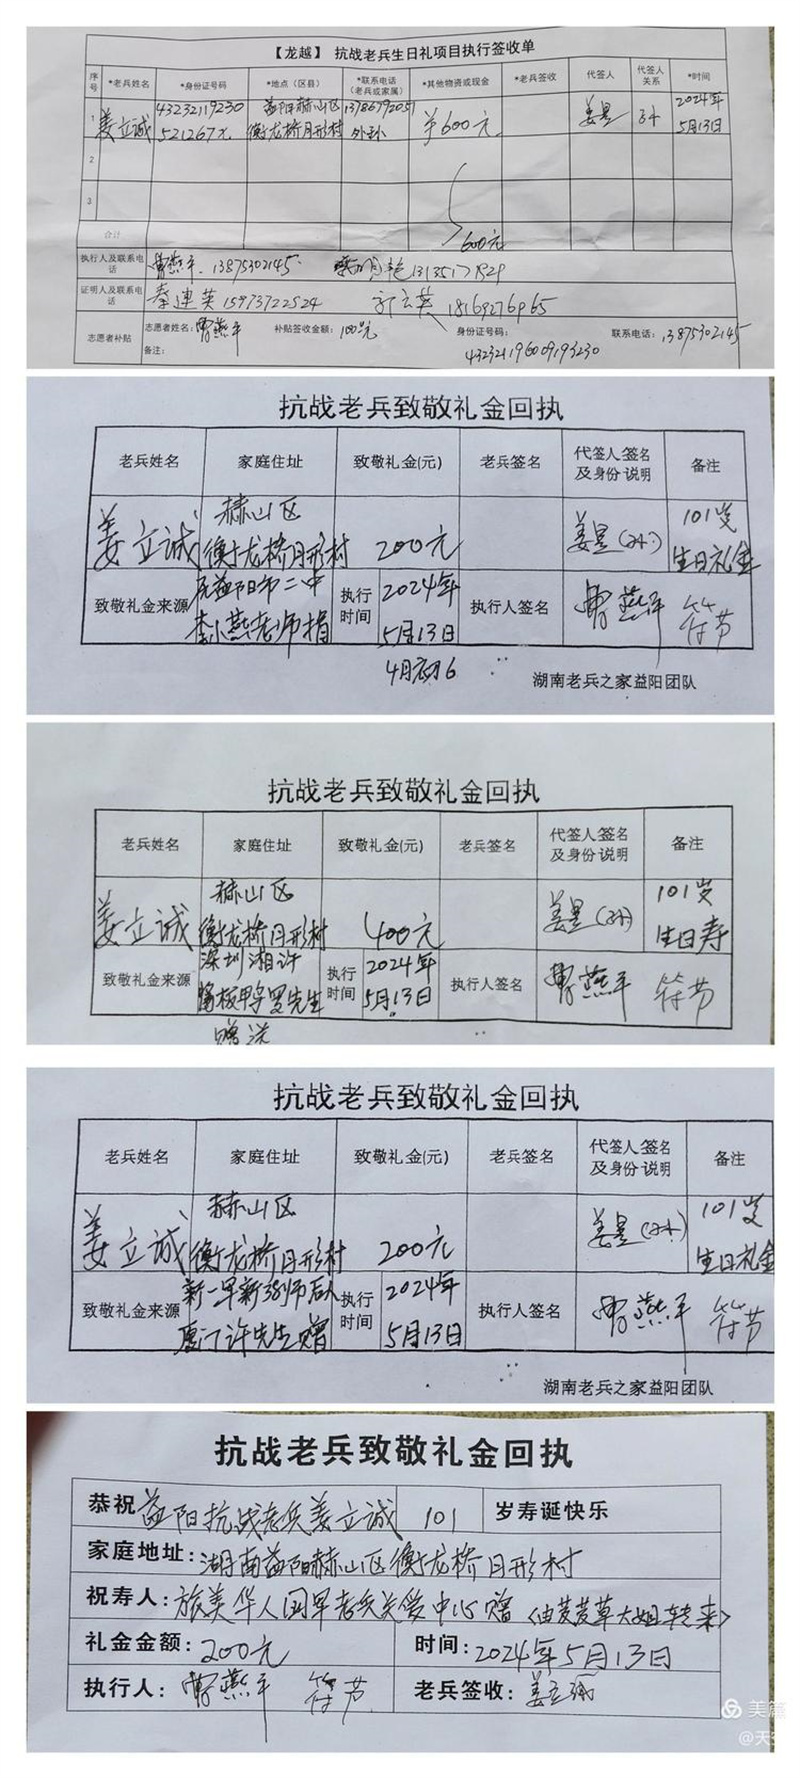 【龙越】 抗战老兵生日礼项目执行签收单
序号 *老兵姓名 *身份证号码 *地点（区县） *联系电话（老兵或家属） *其他物资或现金 *老兵签收 代签人 代签人关系 *时间
1 姜立诚 益阳赫山区衡龙桥月形村 ¥600元 姜昱 2024年5月13日
2
3
合计 600元
执行人及联系电话 曹燕平 13875302145
证明人及联系电话 秦连英 15973722524 18169276965
志愿者补贴 志愿者姓名：曹燕平 补贴签收金额：100元 身份证号码： 联系电话：13875302145
备注：
抗战老兵致敬礼金回执
老兵姓名 家庭住址 致敬礼金(元) 老兵签名 代签人签名及身份说明 备注
姜立诚 赫山区衡龙桥月形村 200元 姜昱 101岁生日礼金
致敬礼金来源 益阳市二中李小燕老师捐 执行时间 2024年5月13日 执行人签名 曹燕平 符节
4月初6
湖南老兵之家益阳团队
抗战老兵致敬礼金回执
老兵姓名 家庭住址 致敬礼金(元) 老兵签名 代签人签名及身份说明 备注
姜立诚 赫山区衡龙桥月形村 400元 姜昱 101岁生日寿
致敬礼金来源 深圳湘许 板鸭罗先生 执行时间 2024年5月13日 执行人签名 曹燕平 符节
赠送
抗战老兵致敬礼金回执
老兵姓名 家庭住址 致敬礼金(元) 老兵签名 代签人签名及身份说明 备注
姜立诚 赫山区衡龙桥月形村 200元 姜昱 101岁生日礼金
致敬礼金来源 新一军新38师后人厦门许先生赠 执行时间 2024年5月13日 执行人签名 曹燕平 符节
湖南老兵之家益阳团队
抗战老兵致敬礼金回执
恭祝 益阳抗战老兵姜立诚 101 岁寿诞快乐
家庭地址：湖南益阳赫山区衡龙桥月形村
祝寿人：旅美华人国军老兵关爱中心赠（由芨芨草大姐转来）
礼金金额：200元 时间：2024年5月13日
执行人：曹燕平 符节 老兵签收：姜立诚
美篇